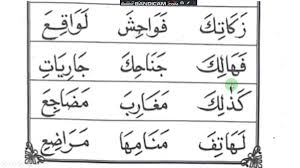 BANDICAM
زَكَاتِكَ فَوَاحِشَ لَوَاقِعَ
فَهَالِكَ جَنَاحِكَ جَارِيَاتِ
كَذٰلِكَ مَغَارِبَ مَضَاجِعَ
لَهَاتِفَ مَنَامِهَا مَرَاضِعَ